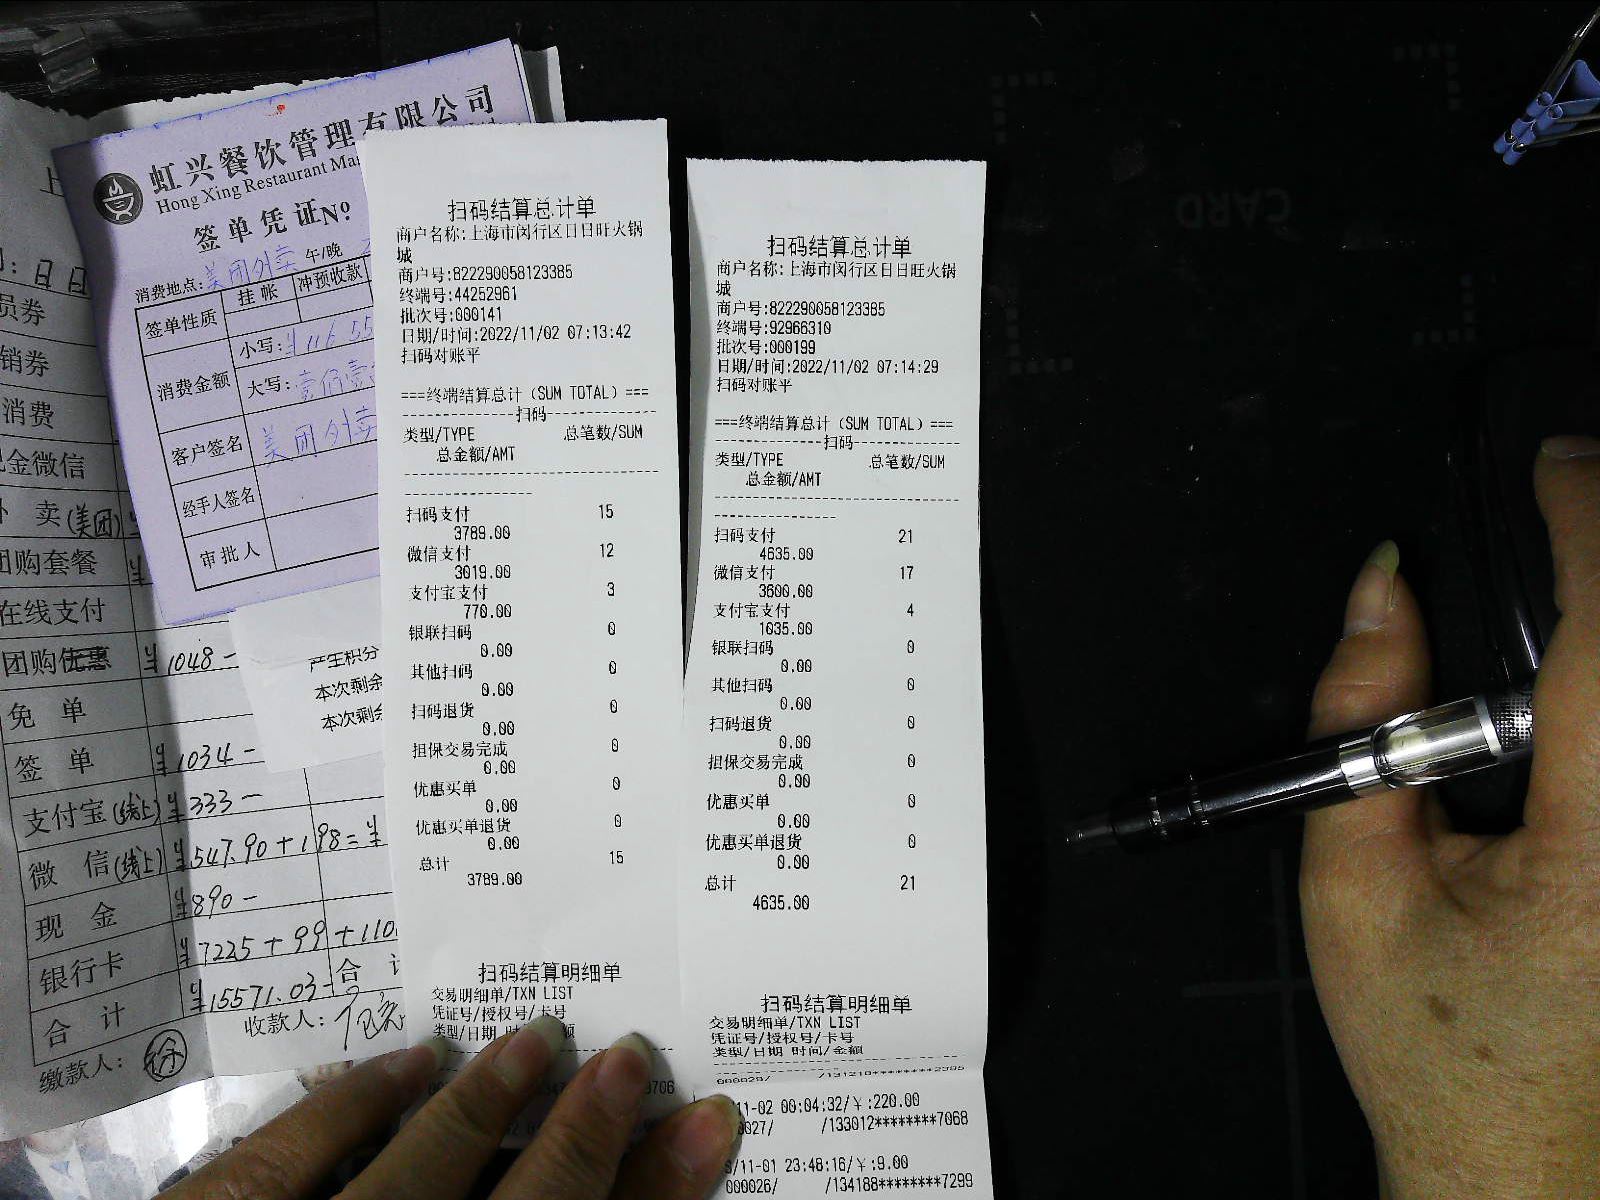 虹兴餐饮管理有限公司
Hong Xing Restaurant
签单凭证No
消费地点:美团外卖 午/晚
签单性质
挂帐
冲预收款
消费金额
小写:¥116.55
大写:壹佰壹
客户签名
美团外卖
经手人签名
审批人
日日
员券
销券
消费
金微信
卖(美团)
团购套餐
在线支付
团购优惠 ¥1048-
免单
签单 ¥1034-
支付宝(线上) ¥333-
微信(线上) ¥547.90+198=¥
现金 ¥890-
银行卡 ¥7225+99+110
合计 ¥15571.03- 合
缴款人: 徐
收款人:
产生积分
本次剩余
本次剩余
扫码结算总计单
商户名称:上海市闵行区日日旺火锅
城
商户号:822290058123385
终端号:44252961
批次号:000141
日期/时间:2022/11/02 07:13:42
扫码对账平
===终端结算总计(SUM TOTAL)===
----------------扫码----------------
类型/TYPE 总笔数/SUM
总金额/AMT
扫码支付 15
3789.00
微信支付 12
3019.00
支付宝支付 3
770.00
银联扫码 0
0.00
其他扫码 0
0.00
扫码退货 0
0.00
担保交易完成 0
0.00
优惠买单 0
0.00
优惠买单退货 0
0.00
总计 15
3789.00
扫码结算明细单
交易明细单/TXN LIST
凭证号/授权号/卡号
类型/日期
扫码结算总计单
商户名称:上海市闵行区日日旺火锅
城
商户号:822290058123385
终端号:92966310
批次号:000199
日期/时间:2022/11/02 07:14:29
扫码对账平
===终端结算总计(SUM TOTAL)===
----------------扫码----------------
类型/TYPE 总笔数/SUM
总金额/AMT
扫码支付 21
4635.00
微信支付 17
3600.00
支付宝支付 4
1035.00
银联扫码 0
0.00
其他扫码 0
0.00
扫码退货 0
0.00
担保交易完成 0
0.00
优惠买单 0
0.00
优惠买单退货 0
0.00
总计 21
4635.00
扫码结算明细单
交易明细单/TXN LIST
凭证号/授权号/卡号
类型/日期 时间/金额
000028/ /131218********2385
11-02 00:04:32/¥:220.00
0027/ /133012********7068
/11-01 23:48:16/¥:9.00
000026/ /134188********7299
CARD